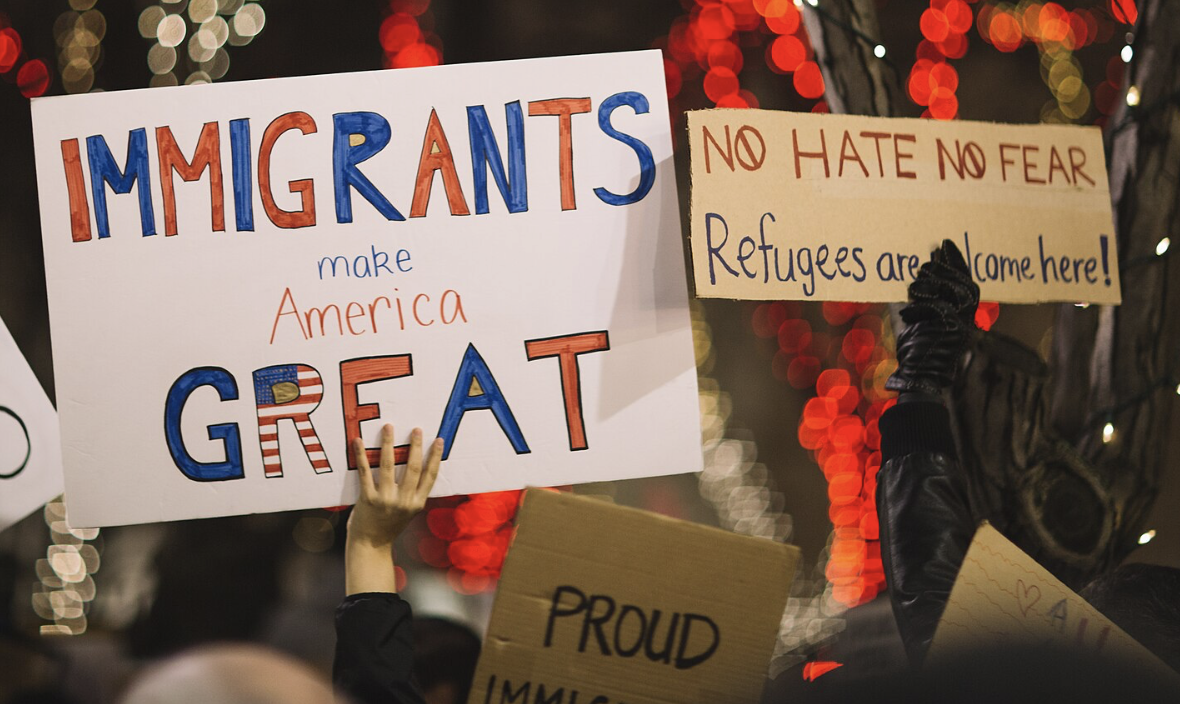 IMMIGRANTS
make
America
GREAT
NO HATE NO FEAR
Refugees are here!
PROUD